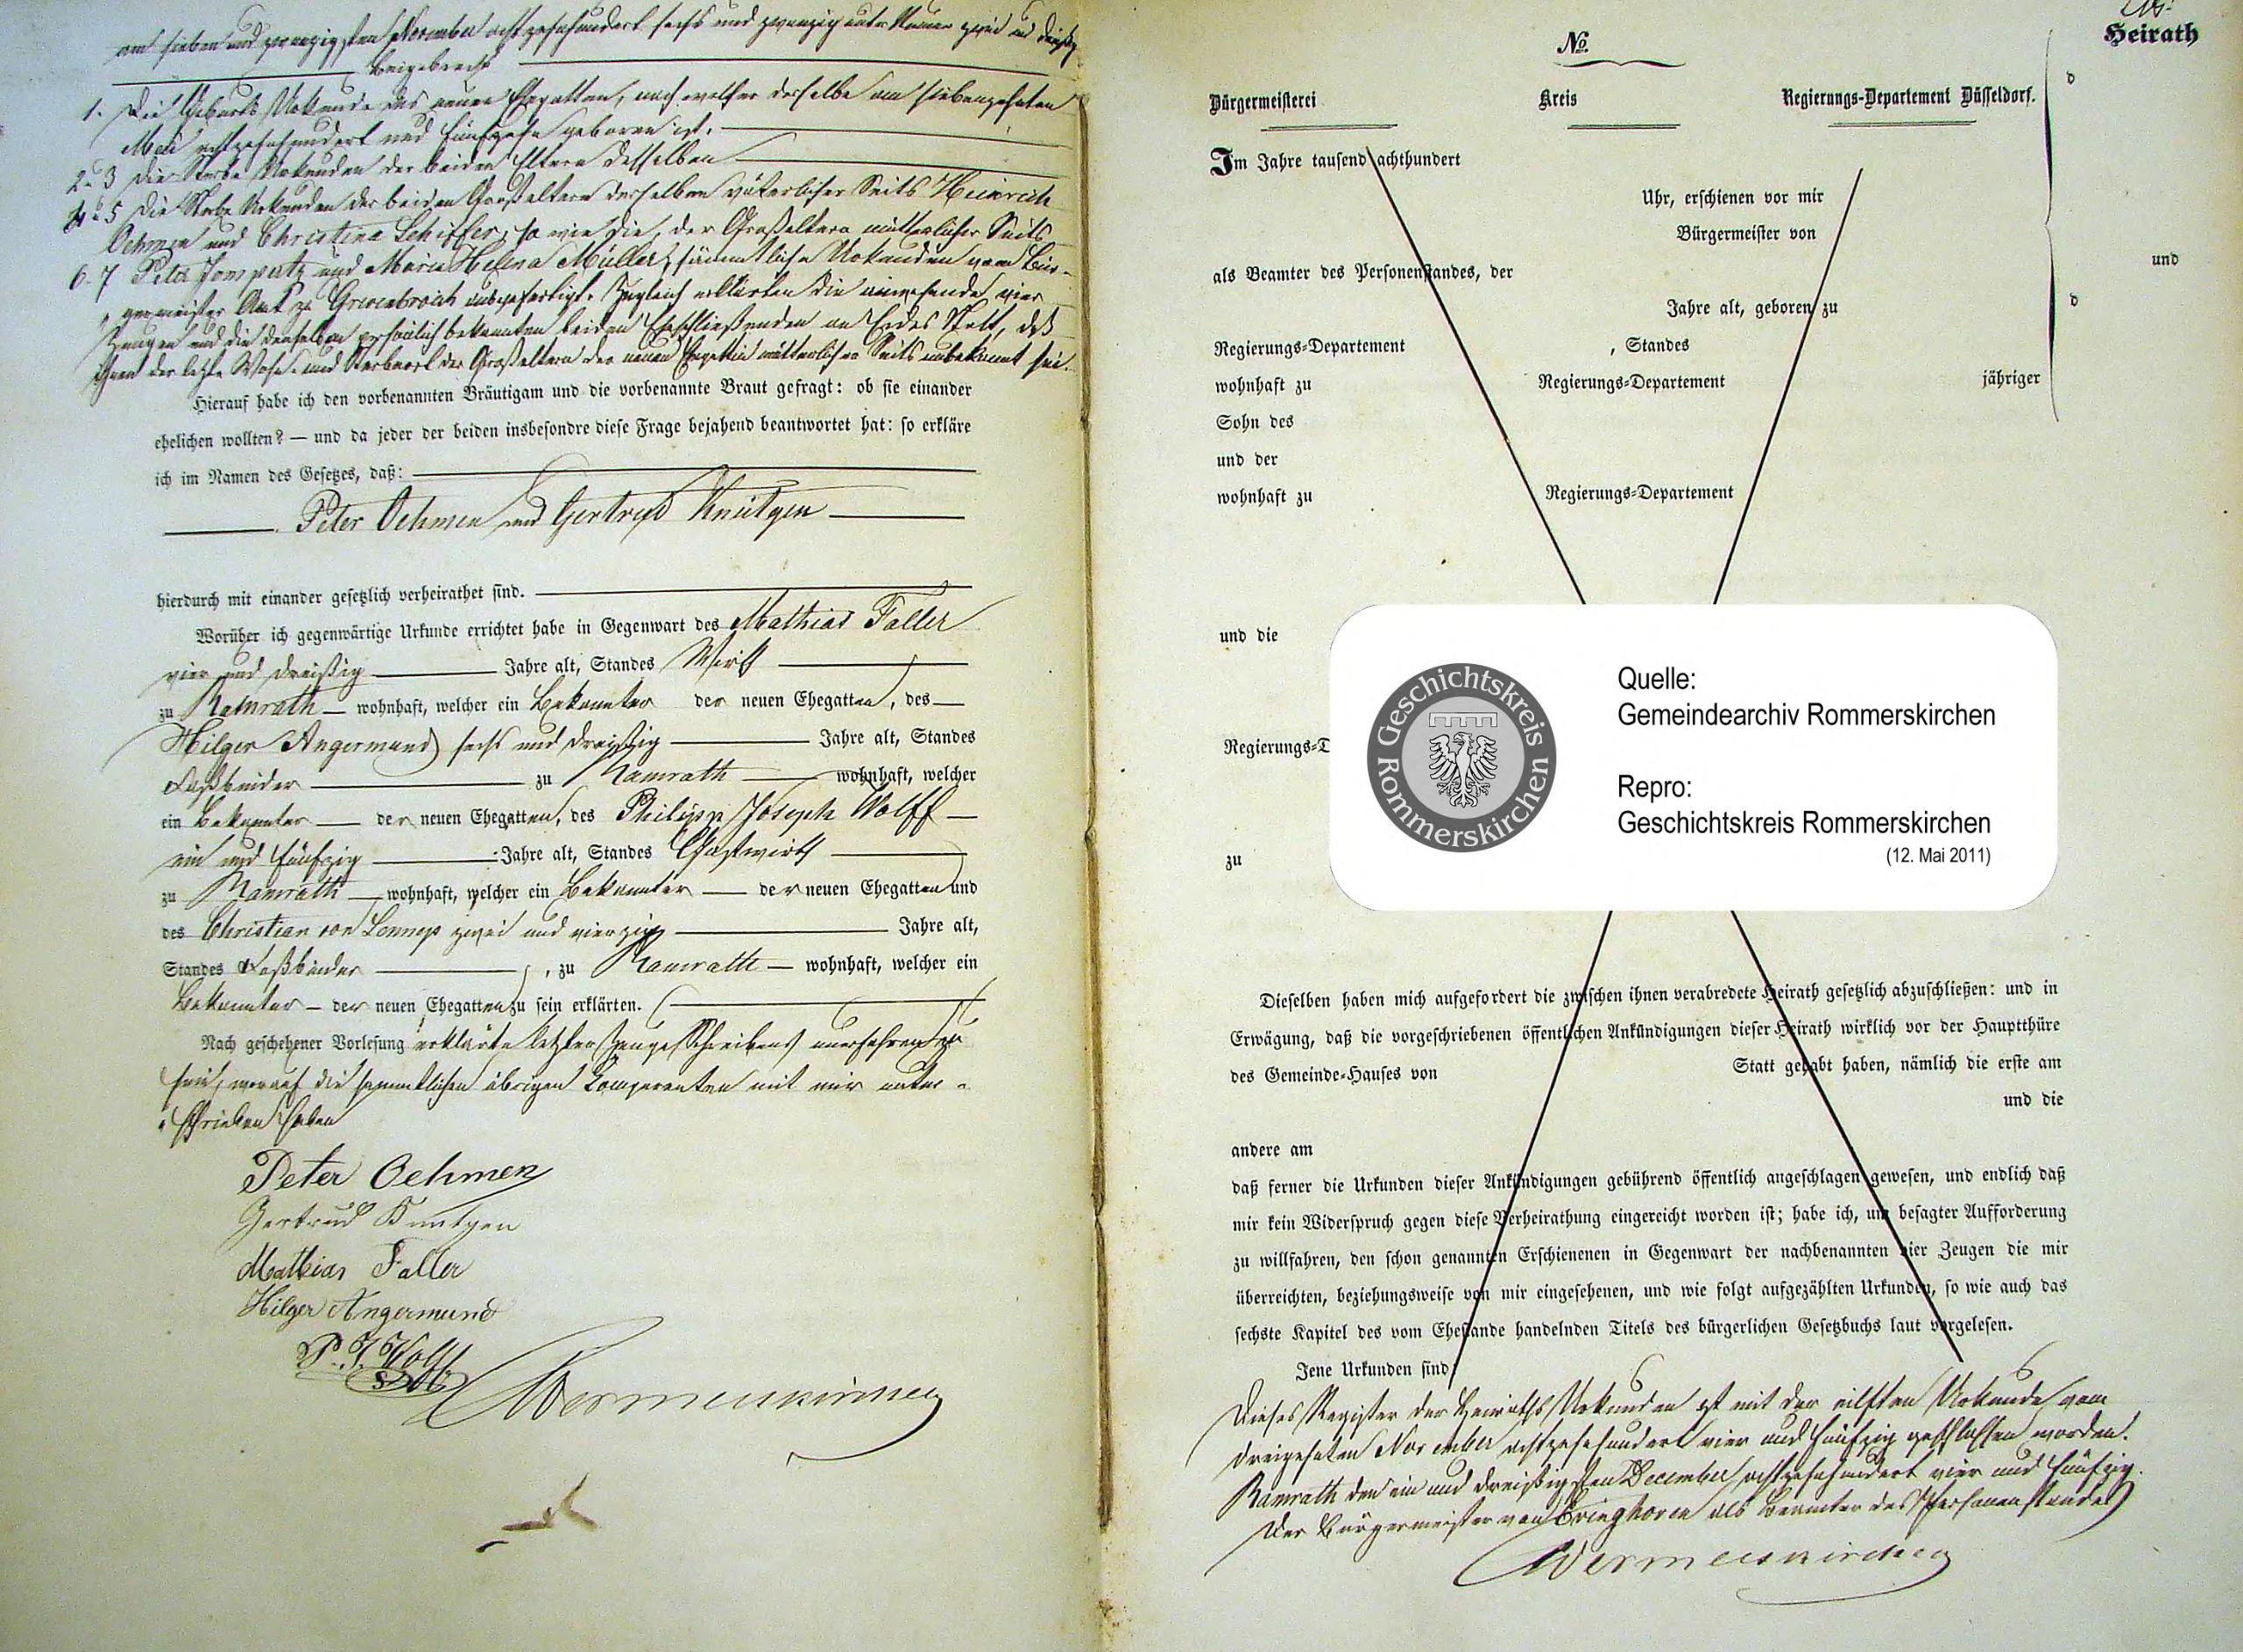 am sieben und zwanzigsten November achtzehnhundert sechs und zwanzig unter Numer zwei und dreißig
beigebracht
1. Die Geburts Urkunde des neuen Ehegatten, nach welcher derselbe am siebenzehnten
Mai achtzehnhundert und fünfzehn geboren ist.
2 u 3 Die Sterbe Urkunden der beiden Eltern desselben
4 u 5 Die Sterbe Urkunden der beiden Großeltern desselben väterlicher Seits Heinrich
Oehmen und Christina Schiffer, so wie die, der Großeltern mütterlicher Seits
6. 7 Peter Jompertz und Maria Helena Müller, sämmtliche Urkunden vom Bür-
germeister Amt zu Grevenbroich ausgefertigt. Zugleich erklärten die anwesende vier
Zeugen und die denselben persönlich bekannten beiden Eheschließenden an Eides Statt, daß
ihnen der letzte Wohn- und Sterbeort der Großeltern der neuen Ehegattin mütterlicher Seits unbekannt sei.
Hierauf habe ich den vorbenannten Bräutigam und die vorbenannte Braut gefragt: ob sie einander
ehelichen wollten? — und da jeder der beiden insbesondre diese Frage bejahend beantwortet hat: so erkläre
ich im Namen des Gesetzes, daß:
Peter Oehmen und Gertrud Knütgen
hierdurch mit einander gesetzlich verheirathet sind.
Worüber ich gegenwärtige Urkunde errichtet habe in Gegenwart des Mathias Faller
vier und dreißig Jahre alt, Standes Wirth
zu Ramrath wohnhaft, welcher ein Bekannter der neuen Ehegatten, des
Hilger Angermund sechs und dreißig Jahre alt, Standes
Faßbinder zu Ramrath wohnhaft, welcher
ein Bekannter der neuen Ehegatten, des Philipp Joseph Wolff
ein und fünfzig Jahre alt, Standes Gastwirth
zu Ramrath wohnhaft, welcher ein Bekannter der neuen Ehegatten und
des Christian von Lennep zwei und vierzig Jahre alt,
Standes Faßbinder, zu Ramrath wohnhaft, welcher ein
Bekannter der neuen Ehegatten zu sein erklärten.
Nach geschehener Vorlesung erklärte letzter Zeuge Schreibens unerfahren zu
sein, worauf die sämmtlichen übrigen Comparenten mit mir unter-
schrieben haben
Peter Oehmen
Gertrud Knutgen
Mathias Faller
Hilger Angermund
P. J. Wolff
Wermerskirchen
Heirath
No.
Bürgermeisterei Kreis Regierungs-Departement Düsseldorf.
Im Jahre tausend achthundert
Uhr, erschienen vor mir
Bürgermeister von
als Beamter des Personenstandes, der
Jahre alt, geboren zu
Regierungs-Departement , Standes
wohnhaft zu Regierungs-Departement jähriger
Sohn des
und der
wohnhaft zu Regierungs-Departement
und die
Regierungs-D
zu
und
Geschichtskreis Rommerskirchen
Quelle:
Gemeindearchiv Rommerskirchen
Repro:
Geschichtskreis Rommerskirchen
(12. Mai 2011)
Dieselben haben mich aufgefordert die zwischen ihnen verabredete Heirath gesetzlich abzuschließen: und in
Erwägung, daß die vorgeschriebenen öffentlichen Ankündigungen dieser Heirath wirklich vor der Hauptthüre
des Gemeinde-Hauses von Statt gehabt haben, nämlich die erste am
und die
andere am
daß ferner die Urkunden dieser Ankündigungen gebührend öffentlich angeschlagen gewesen, und endlich daß
mir kein Widerspruch gegen diese Verheirathung eingereicht worden ist; habe ich, um besagter Aufforderung
zu willfahren, den schon genannten Erschienenen in Gegenwart der nachbenannten vier Zeugen die mir
überreichten, beziehungsweise von mir eingesehenen, und wie folgt aufgezählten Urkunden, so wie auch das
sechste Kapitel des vom Ehestande handelnden Titels des bürgerlichen Gesetzbuchs laut vorgelesen.
Jene Urkunden sind:
Dieses Register der Heiraths Urkunden ist mit der eilften Urkunde vom
dreizehnten November achtzehnhundert vier und fünfzig geschlossen worden.
Ramrath den ein und dreißigsten December achtzehnhundert vier und fünfzig.
Der Bürgermeister von Evinghoven als Beamter des Personenstandes
Wermerskirchen